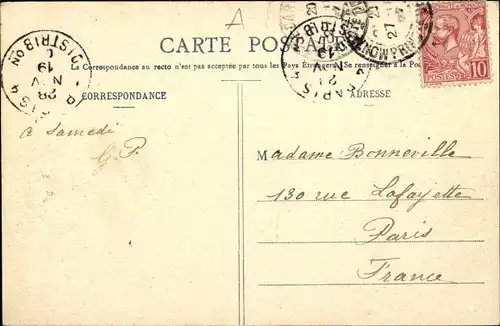 A
CARTE POSTALE
La Correspondance au recto n'est pas acceptée par tous les Pays Étrangers (Se renseigner à la
CORRESPONDANCE
ADRESSE
PARIS
DISTRIBON
28
NV
19
PARIS
27
10
POSTES
à samedi
G.P.
Madame Bonneville
130 rue Lafayette
Paris
France